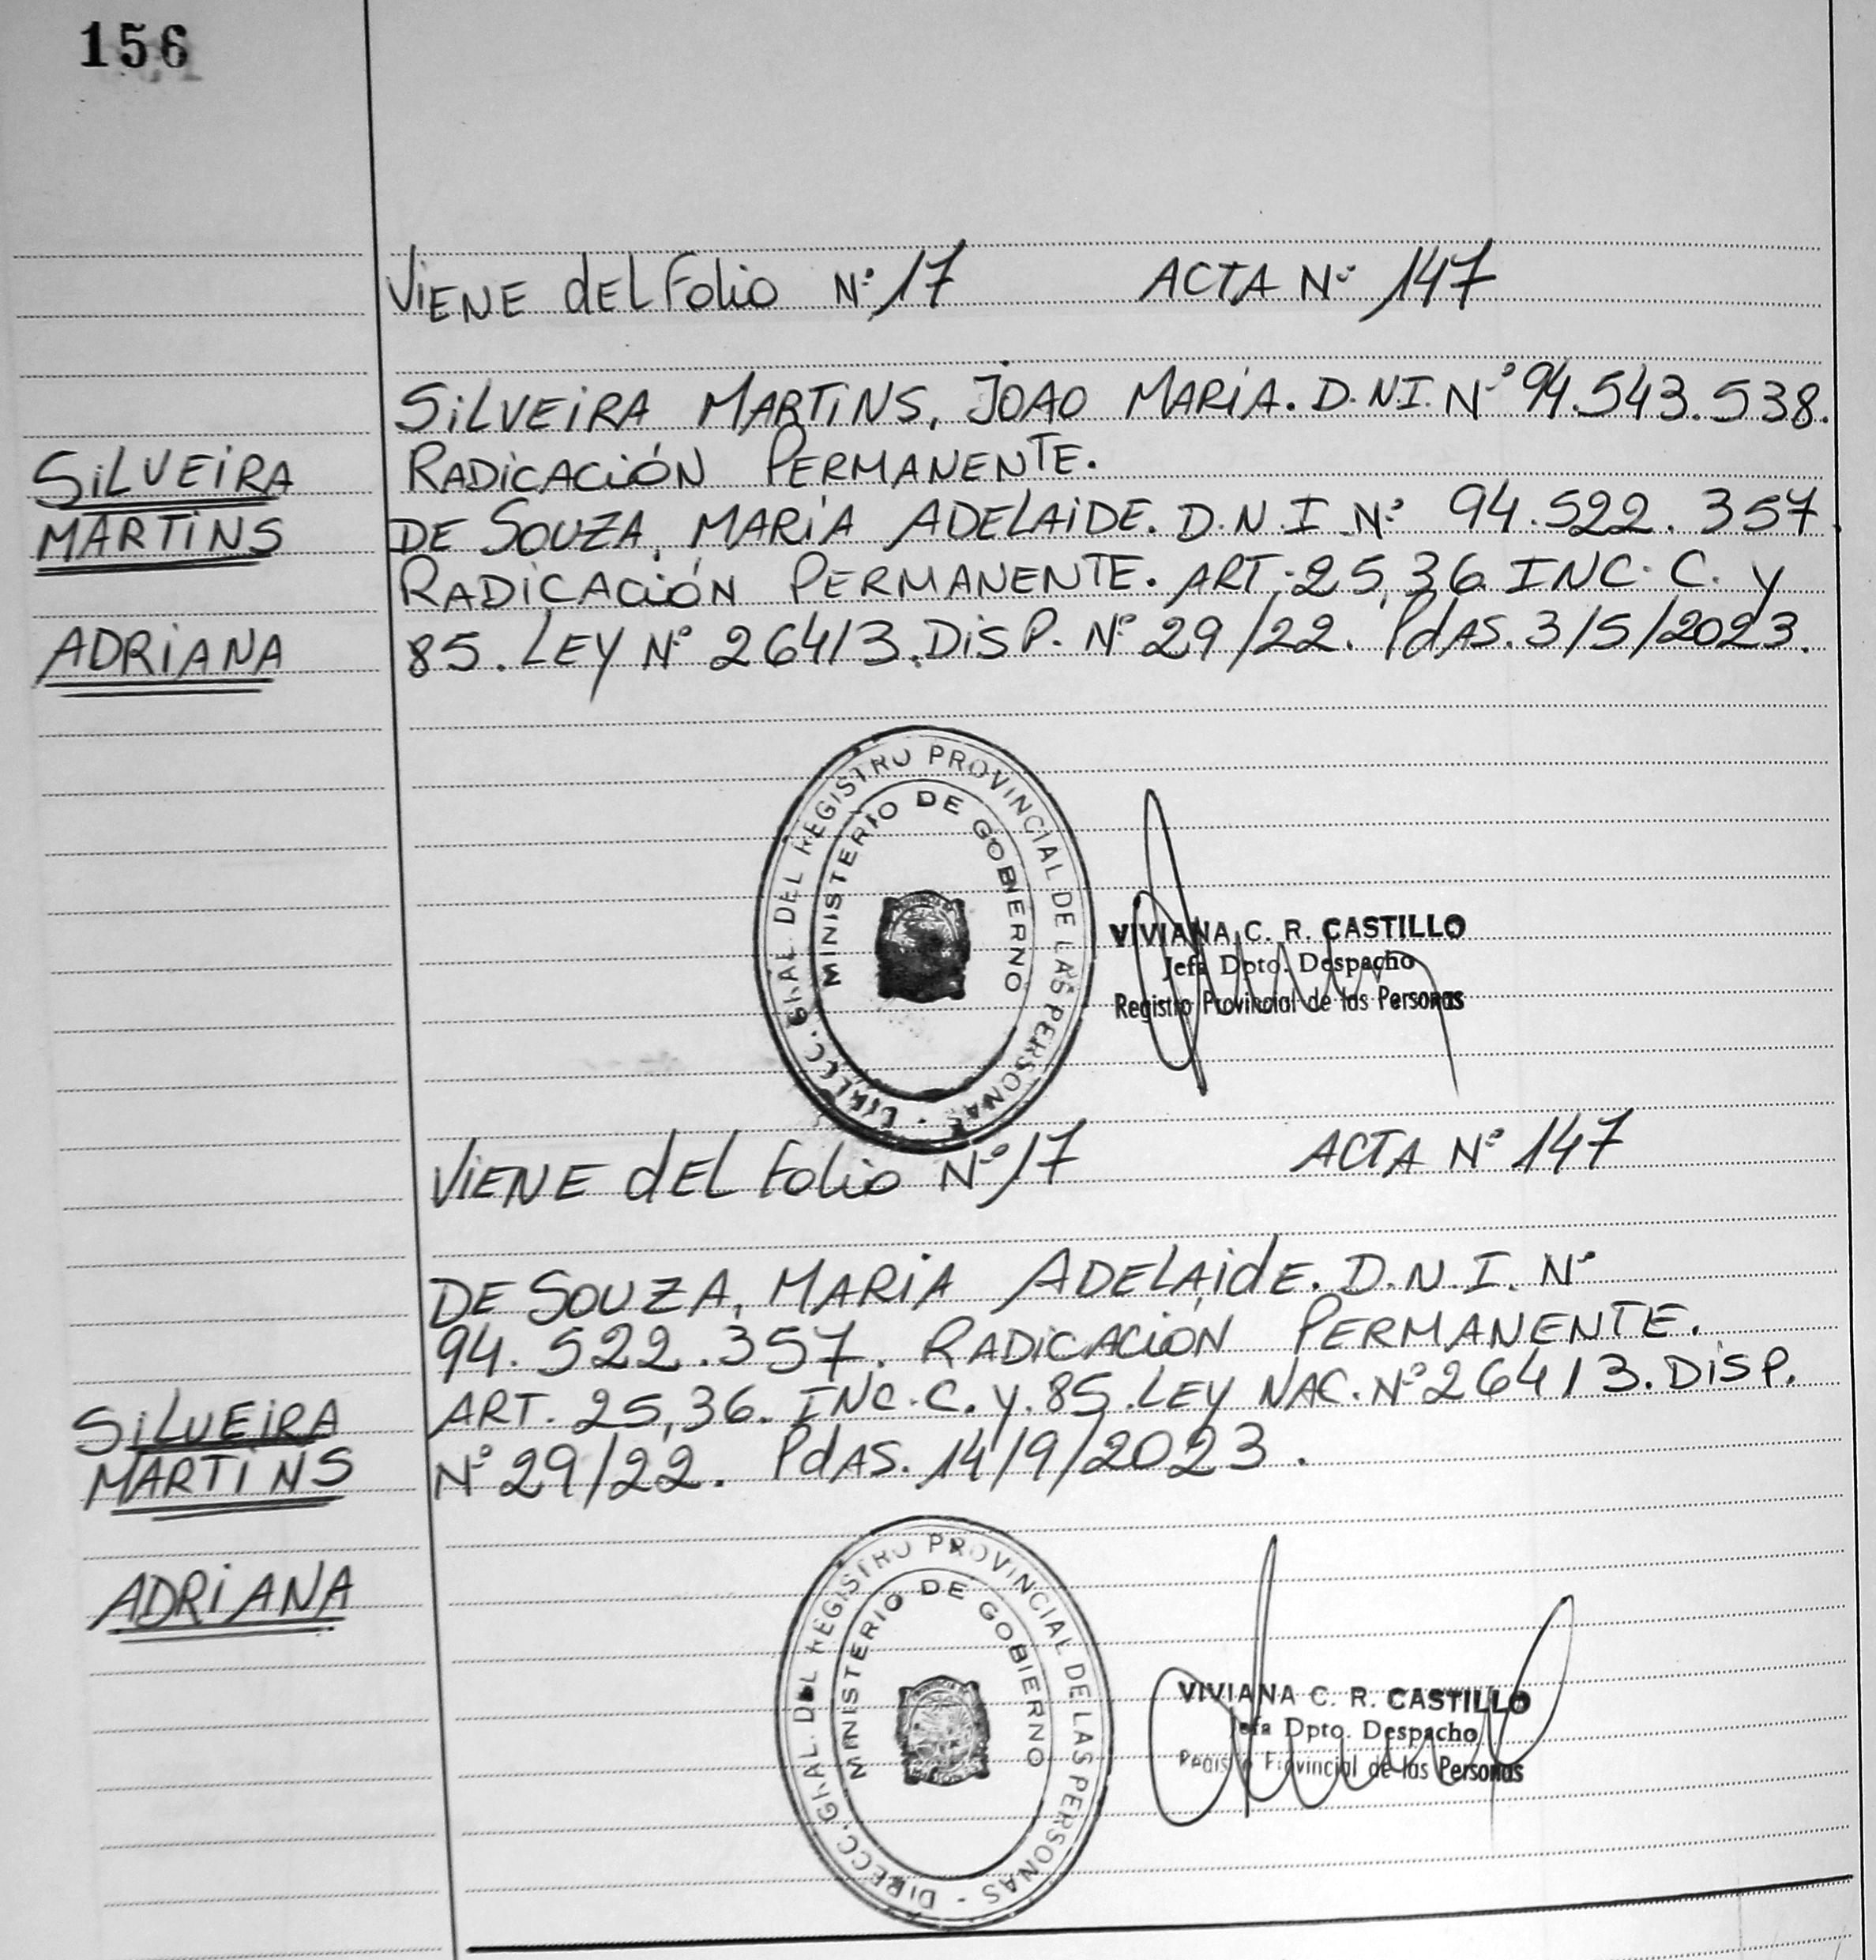 156
VIENE dEL Folio Nº 17 ACTA Nº 147
SILVEIRA MARTINS, JOAO MARIA. D.N.I. Nº 94.543.538.
RADICACIÓN PERMANENTE.
DE SOUZA, MARIA ADELAIDE. D.N.I Nº 94.522.357.
RADICACIÓN PERMANENTE. ART. 25, 36. INC. C. y
85. LEY Nº 26413. DISP. Nº 29/22. PdAS. 3/5/2023.
SILVEIRA
MARTINS
ADRIANA
DIRECC. GRAL. DEL REGISTRO PROVINCIAL DE LAS PERSONAS -
MINISTERIO DE GOBIERNO
VIVIANA C. R. CASTILLO
Jefa Dpto. Despacho
Registro Provincial de las Personas
VIENE dEL Folio Nº 17 ACTA Nº 147
DE SOUZA, MARIA ADELAIDE. D.N.I. Nº
94.522.357. RADICACIÓN PERMANENTE.
ART. 25, 36. INC. C. y. 85. LEY NAC. Nº 26413. DISP.
Nº 29/22. PdAS. 14/9/2023.
SILVEIRA
MARTINS
ADRIANA
DIRECC. GRAL. DEL REGISTRO PROVINCIAL DE LAS PERSONAS -
MINISTERIO DE GOBIERNO
VIVIANA C. R. CASTILLO
Jefa Dpto. Despacho
Registro Provincial de las Personas